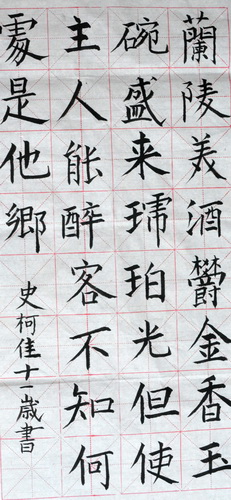 蘭陵美酒欝金香玉
碗盛来琥珀光但使
主人能醉客不知何
處是他鄉
史柯佳十一歲書